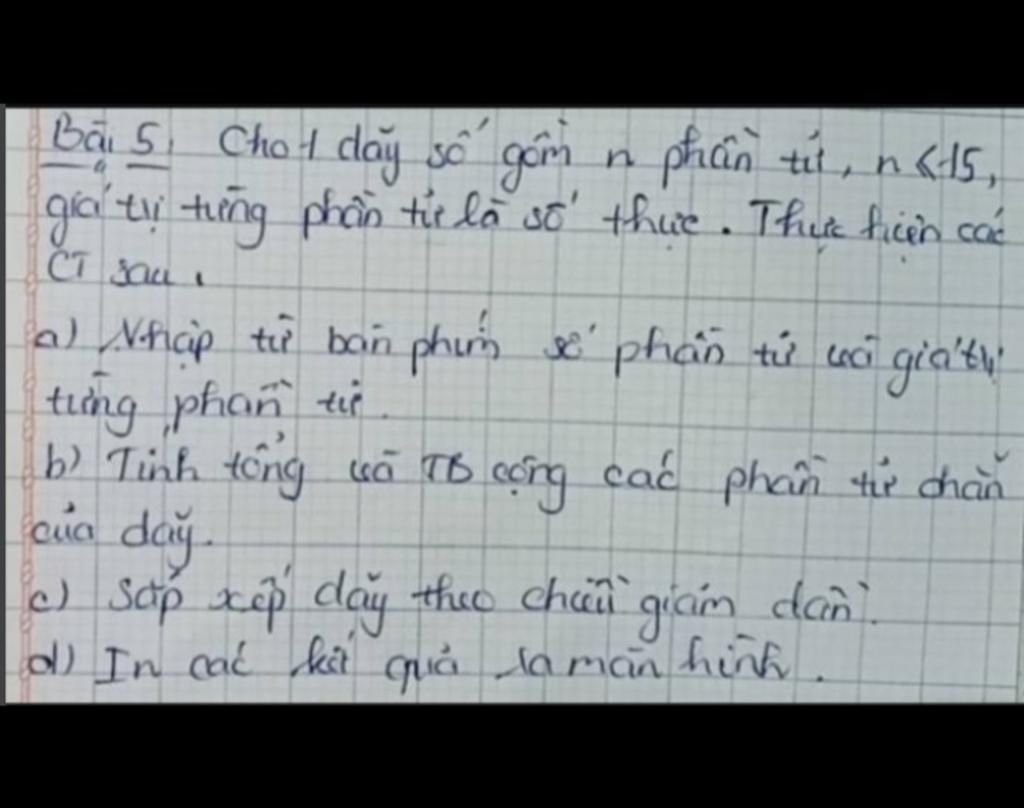 Bài 5: Cho 1 dãy số gồm n phần tử, n<15,
giá trị từng phần tử là số thực. Thực hiện các
CT sau.
a) Nhập từ bàn phím số phần tử và giá trị
từng phần tử.
b) Tính tổng và TB cộng các phần tử chẵn
của dãy.
c) Sắp xếp dãy theo chiều giảm dần.
d) In các kết quả ra màn hình.